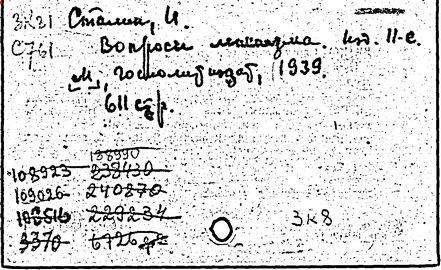 3К21 Сталин, И.
С761 Вопросы ленинизма. Изд. 11-е.
[М], Госполитиздат, 1939.
611 стр.
138990
108923 238430
109026 240870
229234
3370 6726
3К8